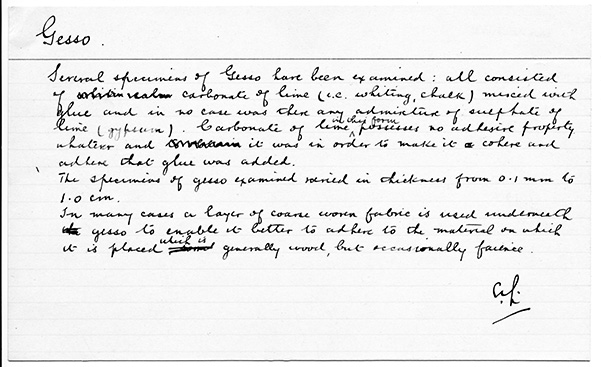 Gesso.
Several specimens of Gesso have been examined: all consisted
of carbonate of lime (i.e. whiting, chalk) mixed with
glue and in no case was there any admixture of sulphate of
lime (gypsum). Carbonate of lime in this form possesses no adhesive property
whatever and it was in order to make it cohere and
adhere that glue was added.
The specimens of gesso examined varied in thickness from 0.1 mm to
1.0 cm.
In many cases a layer of coarse woven fabric is used underneath
gesso to enable it better to adhere to the material on which
it is placed which is generally wood, but occasionally faience.
A.L.